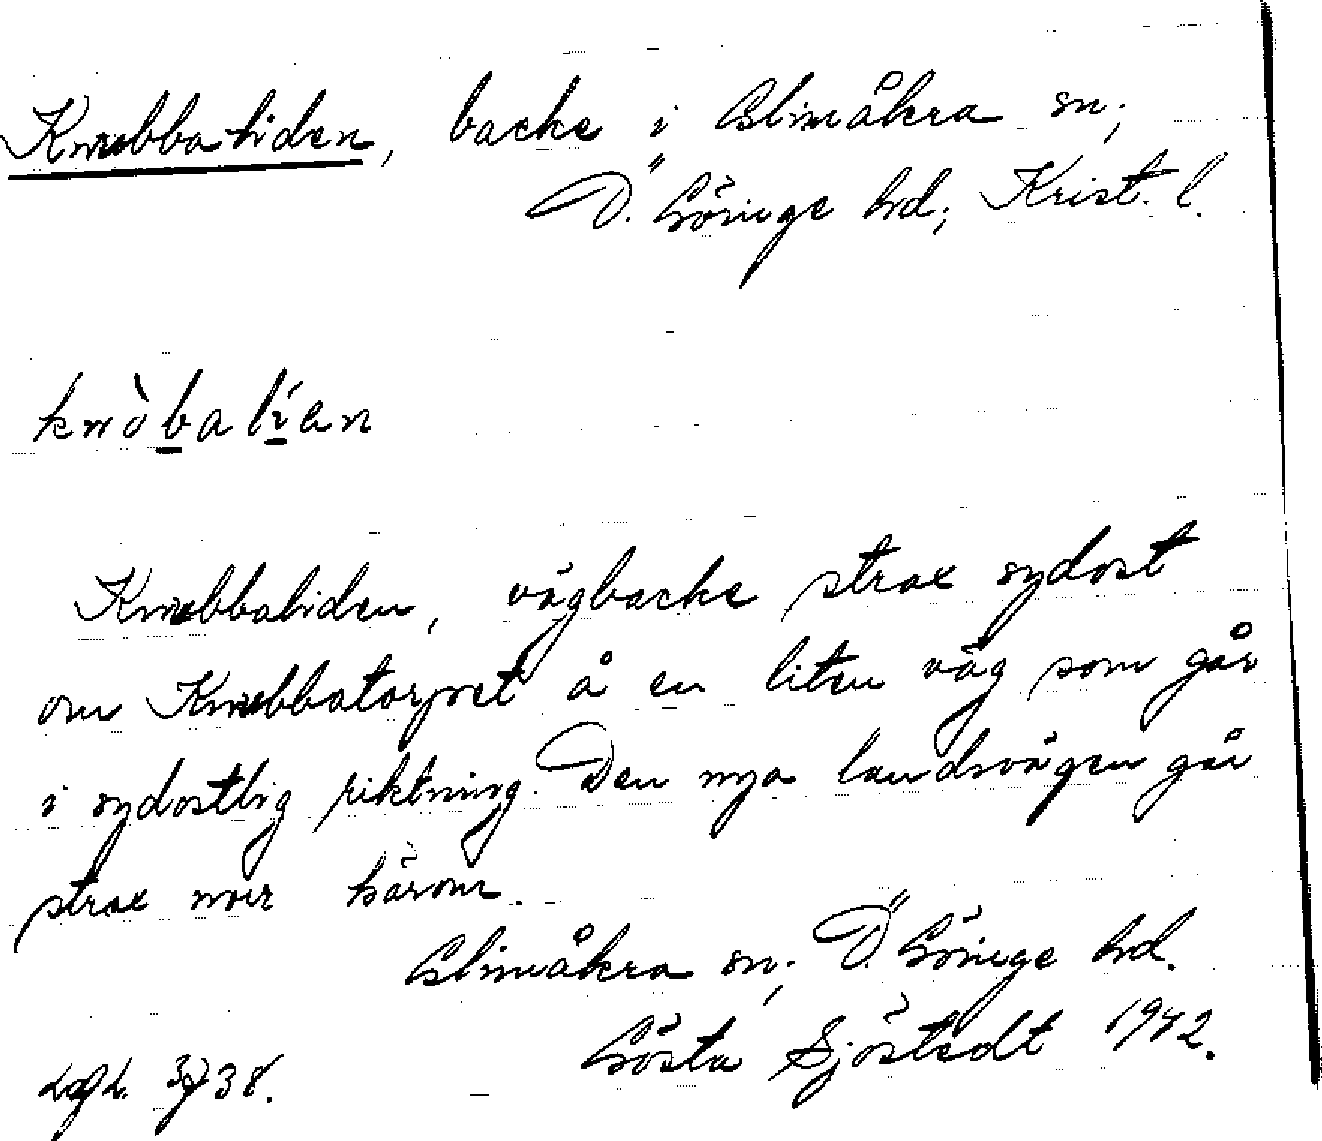 Knubbaliden, backe i Glimåkra sn;
Ö. Göinge hd; Krist. l.
knòbalían
Knubbaliden, vägbacke strax sydost
om Knubbatorpet å en liten väg som går
i sydostlig riktning. Den nya landsvägen går
strax norr härom.
Glimåkra sn; Ö. Göinge hd.
Gösta Sjöstedt 1942.